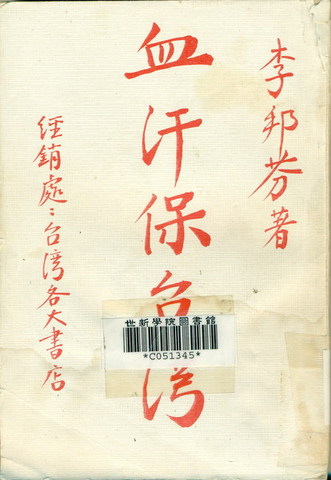 李邦芬著
血汗保台湾
經銷處：台湾各大書店
世新學院圖書館
*C051345*